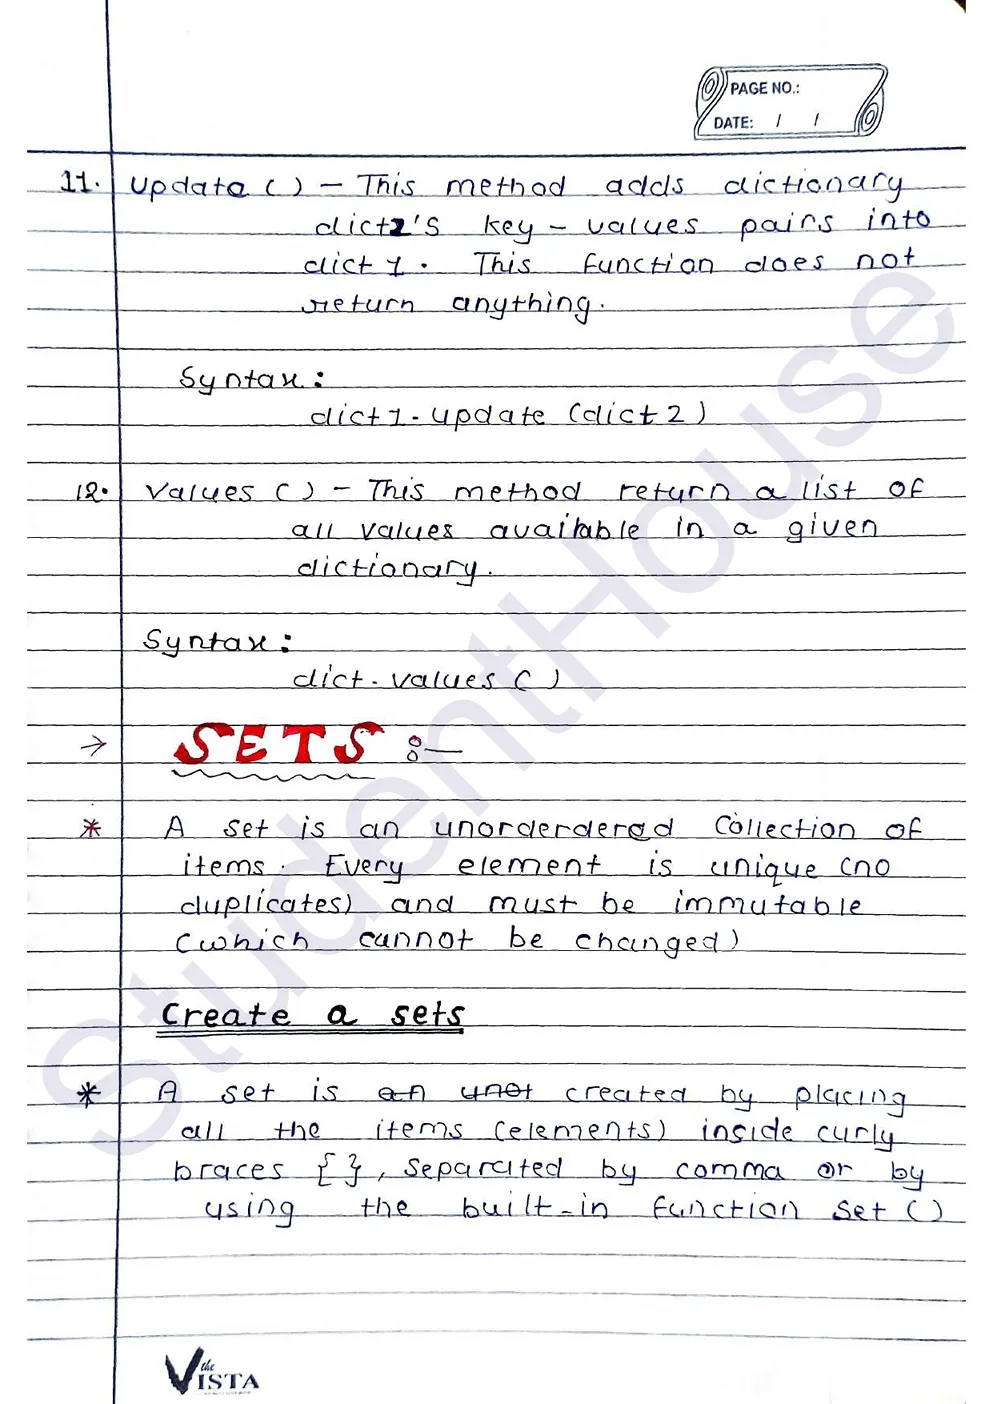 PAGE NO.:
DATE: / /
11. Update ( ) - This method adds dictionary
dict2's key - values pairs into
dict 1. This function does not
return anything.
Syntax :
dict1.update (dict 2)
12. Values ( ) - This method return a list of
all values available in a given
dictionary.
Syntax :
dict.values ( )
→ SETS :-
* A set is an unorderdered Collection of
items. Every element is unique (no
duplicates) and must be immutable
(which cannot be changed)
Create a sets
* A set is an unot created by placing
all the items (elements) inside curly
braces { }, separated by comma or by
using the built-in function set ( )
StudentHouse
the VISTA